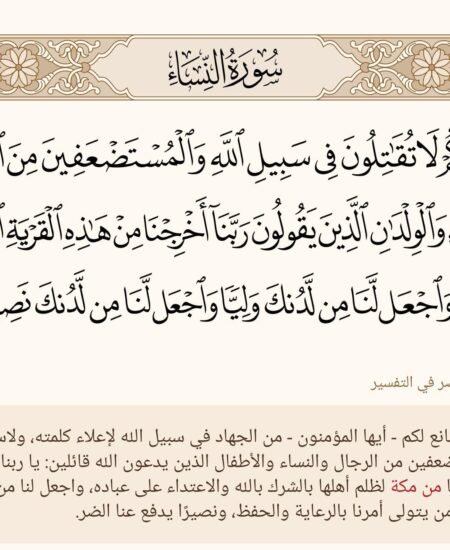 سُورَةُ النِّسَاءِ
لَا تُقَٰتِلُونَ فِي سَبِيلِ ٱللَّهِ وَٱلۡمُسۡتَضۡعَفِينَ مِنَ
وَٱلۡوِلۡدَٰنِ ٱلَّذِينَ يَقُولُونَ رَبَّنَآ أَخۡرِجۡنَا مِنۡ هَٰذِهِ ٱلۡقَرۡيَةِ
وَٱجۡعَل لَّنَا مِن لَّدُنكَ وَلِيّٗا وَٱجۡعَل لَّنَا مِن لَّدُنكَ نَصِ
ـر في التفسير
ـانع لكم - أيها المؤمنون - من الجهاد في سبيل الله لإعلاء كلمته، ولاس
ـضعفين من الرجال والنساء والأطفال الذين يدعون الله قائلين: يا ربنا
ـا من مكة لظلم أهلها بالشرك بالله والاعتداء على عباده، واجعل لنا من
من يتولى أمرنا بالرعاية والحفظ، ونصيرًا يدفع عنا الضر.